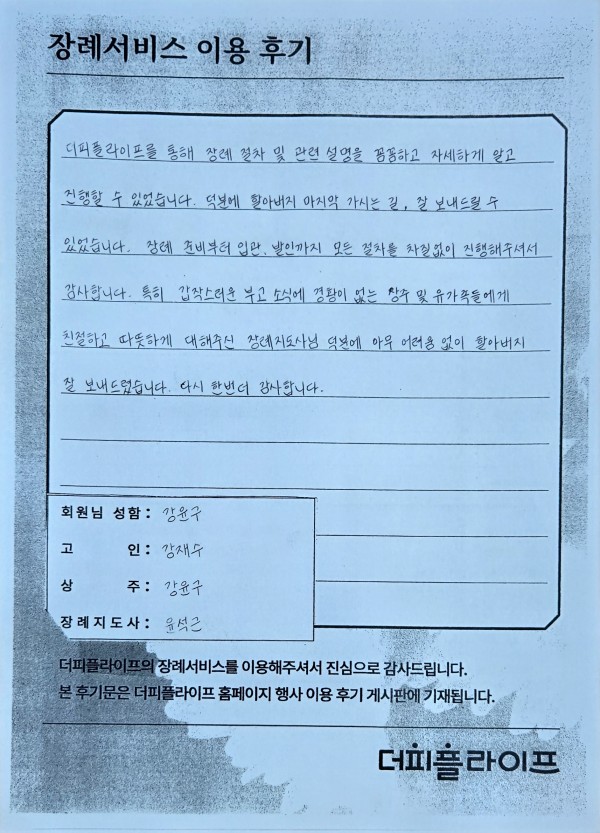 장례서비스 이용 후기
더피플라이프를 통해 장례 절차 및 관련 설명을 꼼꼼하고 자세하게 알고
진행할 수 있었습니다. 덕분에 할아버지 마지막 가시는 길, 잘 보내드릴 수
있었습니다. 장례 준비부터 입관, 발인까지 모든 절차를 차질없이 진행해주셔서
감사합니다. 특히 갑작스러운 부고 소식에 경황이 없는 상주 및 유가족들에게
친절하고 따뜻하게 대해주신 장례지도사님 덕분에 아무 어려움 없이 할아버지
잘 보내드렸습니다. 다시 한번더 감사합니다.
회원님 성함 : 강윤구
고 인 : 강재수
상 주 : 강윤구
장례지도사 : 윤석근
더피플라이프의 장례서비스를 이용해주셔서 진심으로 감사드립니다.
본 후기문은 더피플라이프 홈페이지 행사 이용 후기 게시판에 기재됩니다.
더피플라이프